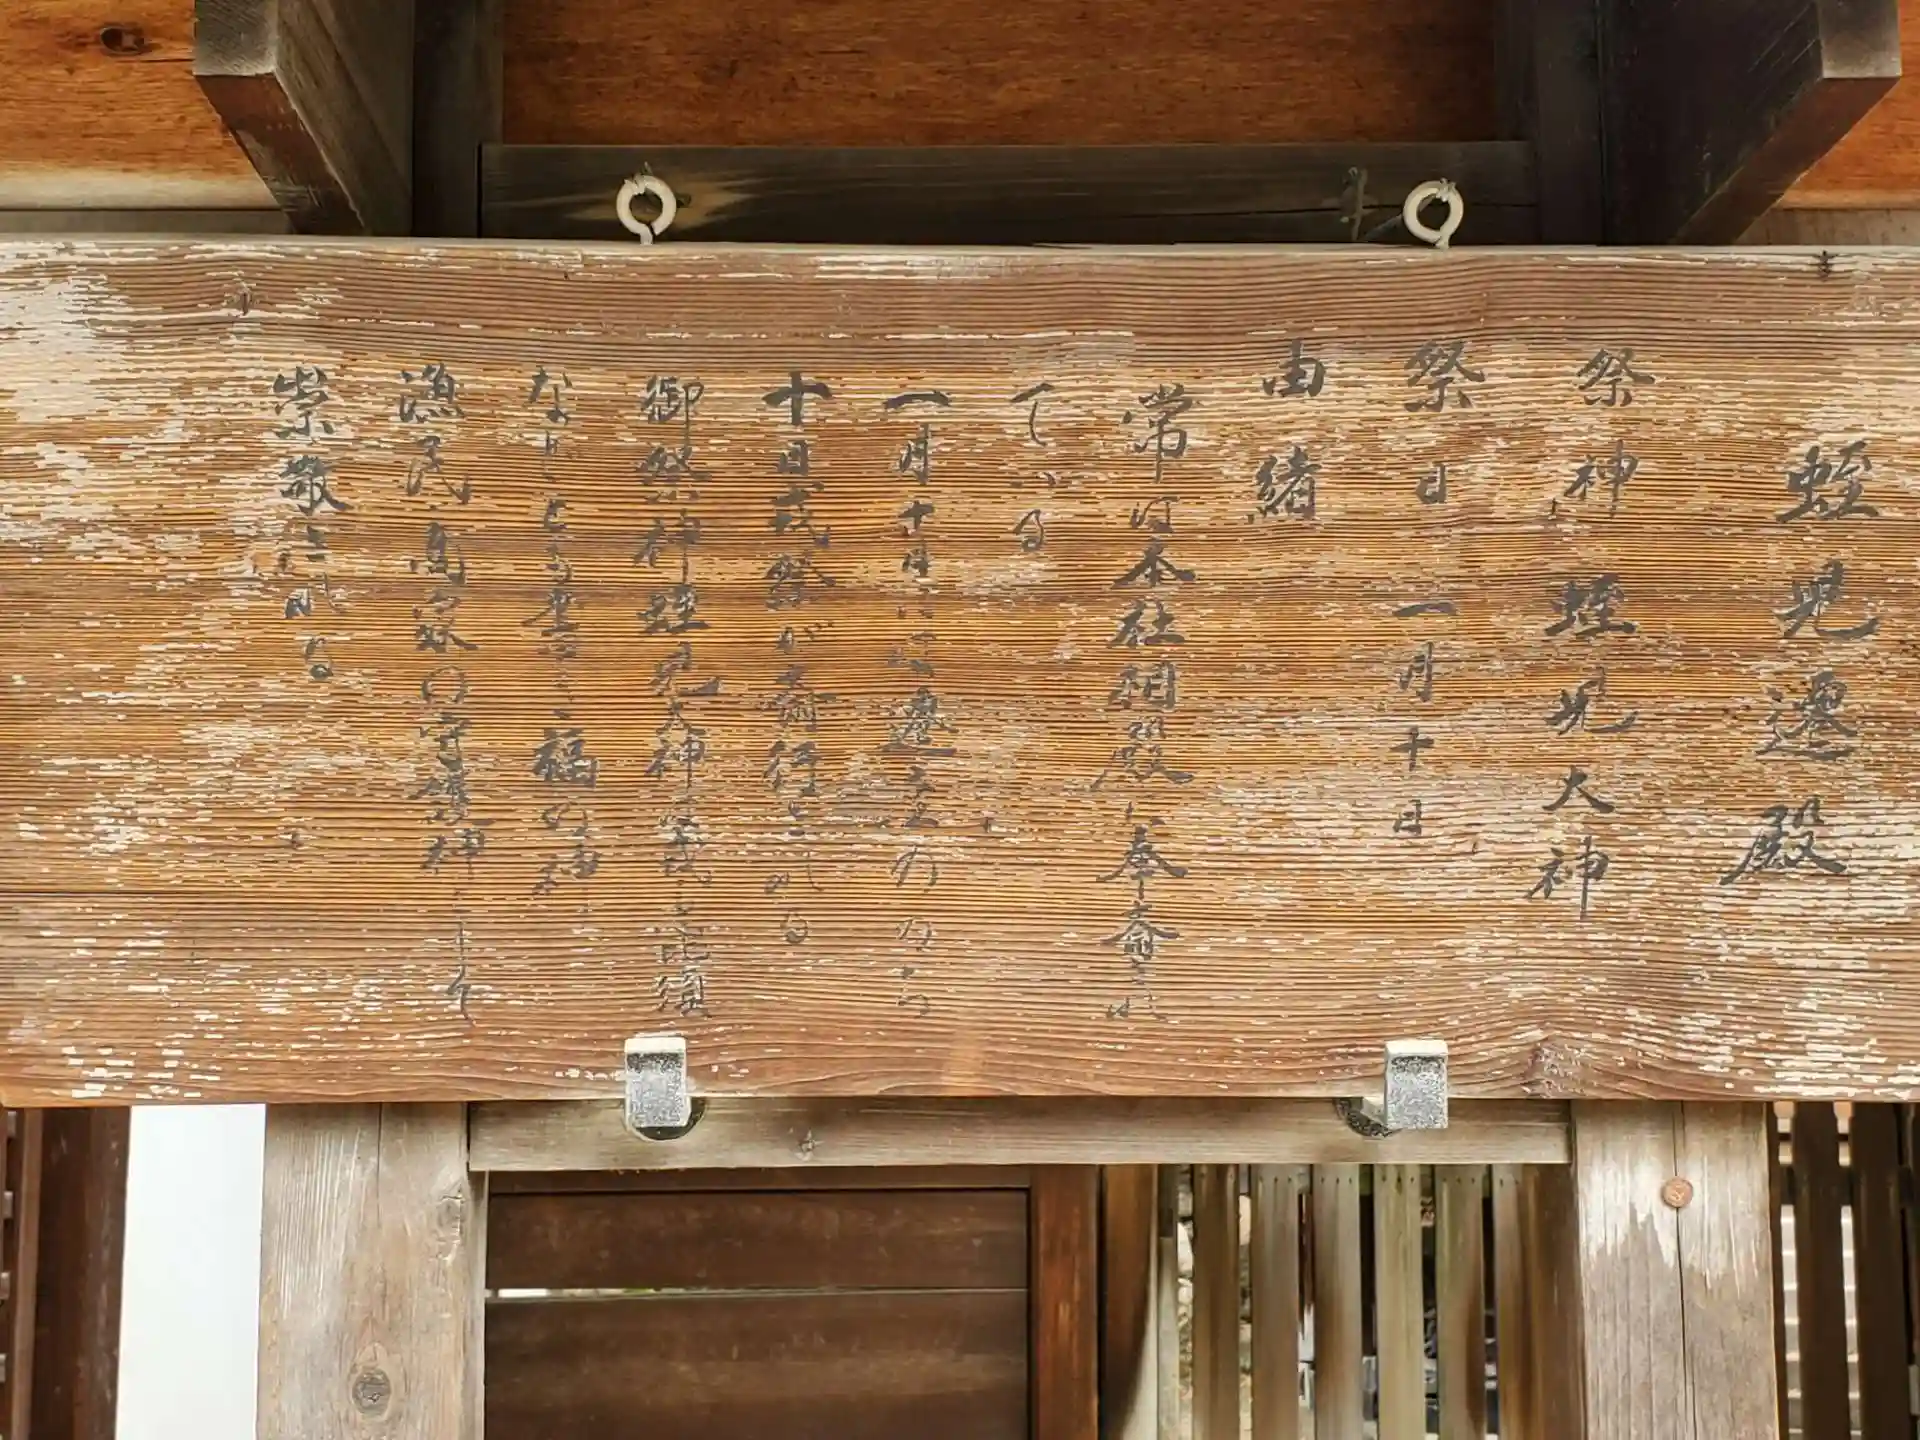 蛭児遷殿
祭神 蛭児大神
祭日 一月十日
由緒
常は本社相殿に奉斎され
ている
一月十日には遷 のち
十日戎祭が斎行される
御祭神蛭児大神は戎恵比須
などとも書き 福の神
漁民・商家の守護神として
崇敬される